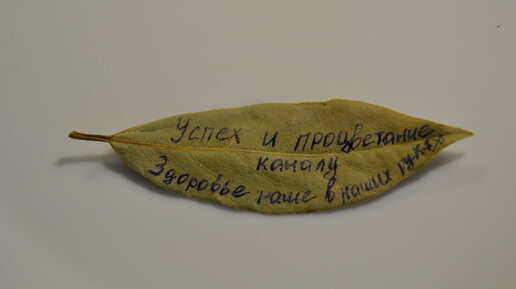 Успех и процветание
каналу
Здоровье наше в наших руках